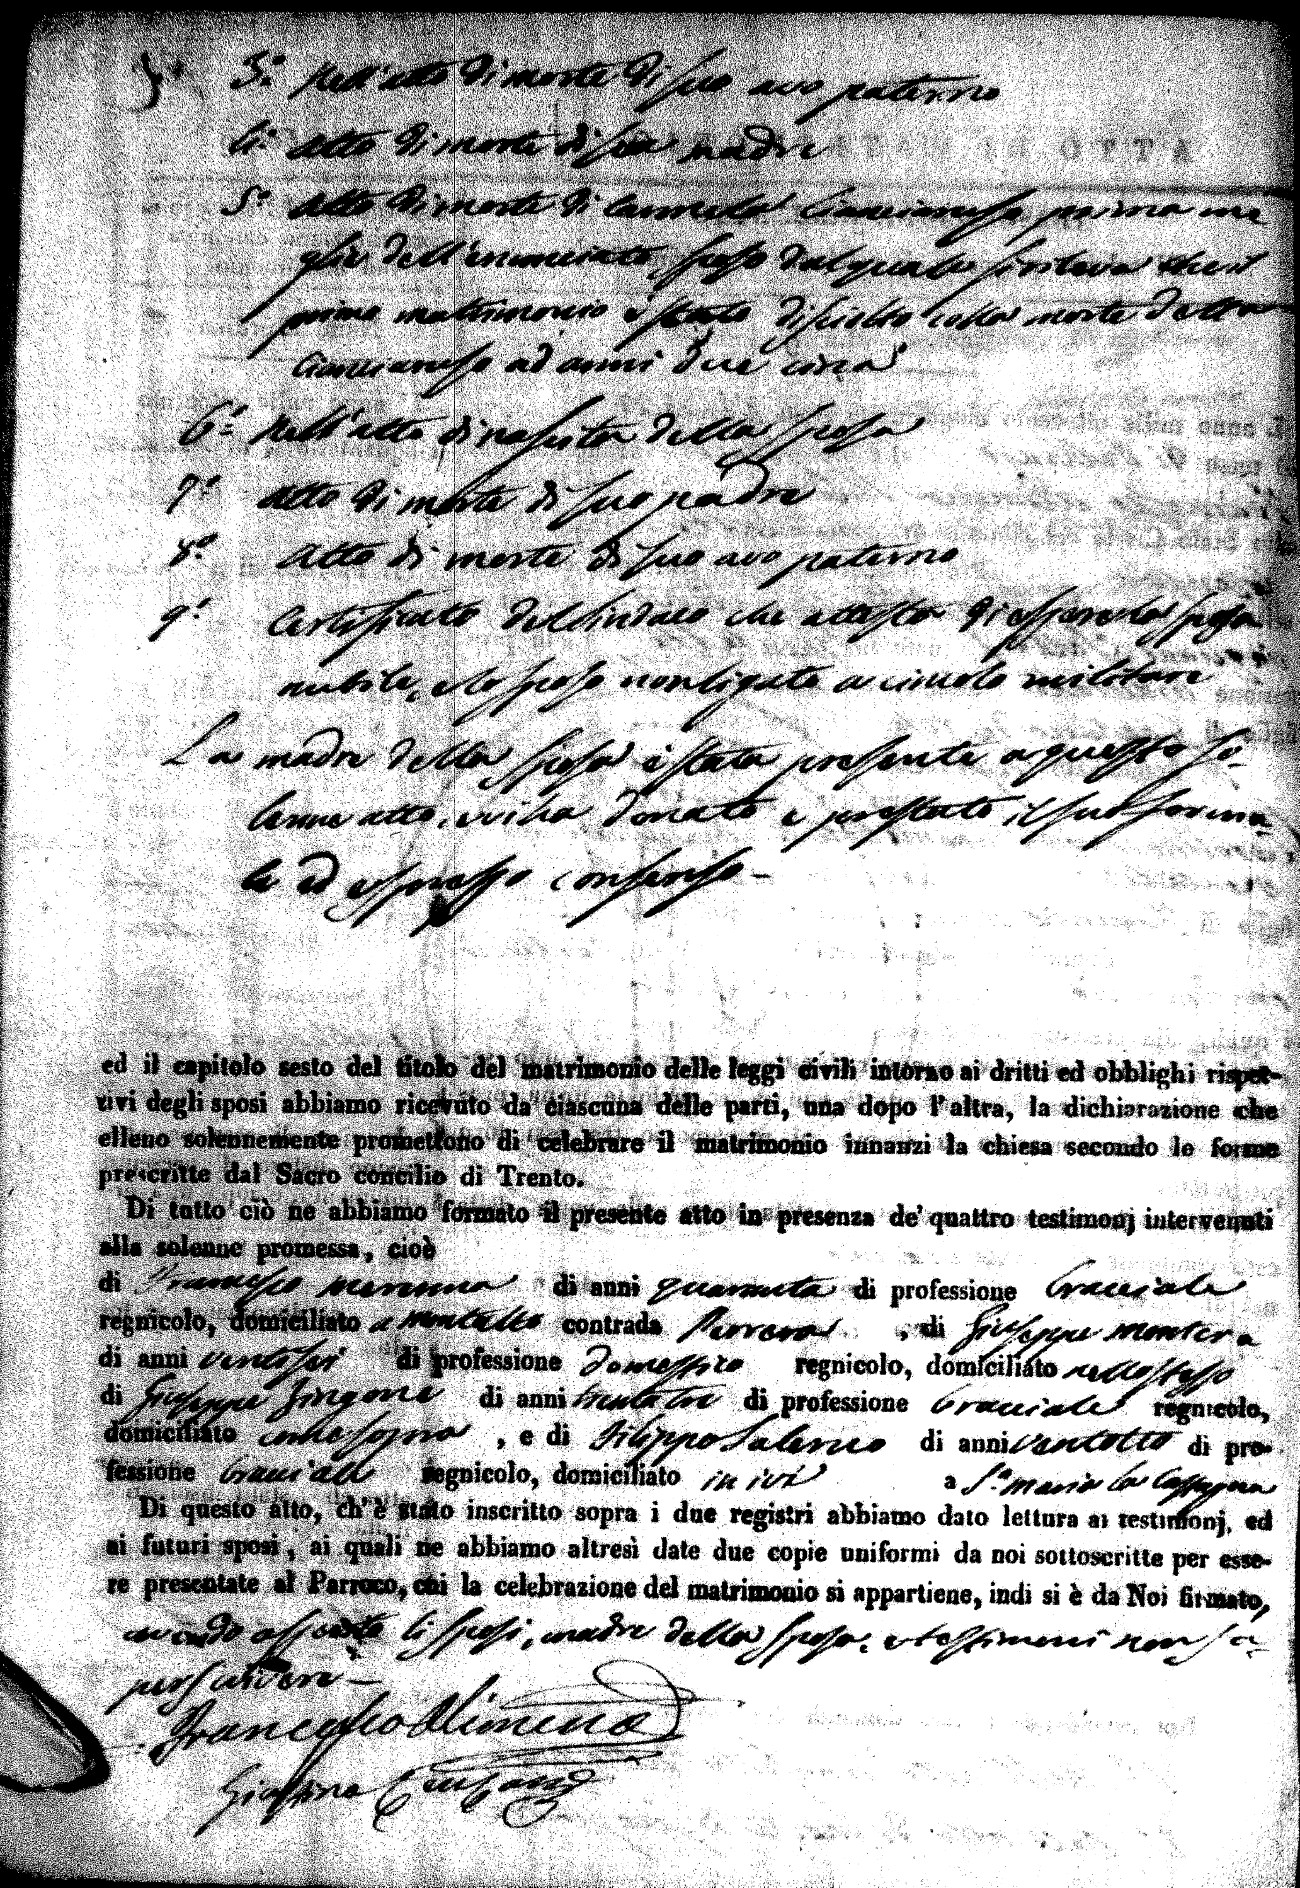 3.° Nell'atto di morte di suo avo paterno
4.° Atto di morte di sua madre
5.° Atto di morte di Carmela prima mo
glie dell'enunciato sposo dal quale si rileva che il
primo matrimonio è stato disciolto colla morte della
ad anni due circa
6.° Nell'atto di nascita della sposa
7.° Atto di morte di suo padre
8.° Atto di morte di suo avo paterno
9.° Certificato del Sindaco che attesta di essere la sposa
nubile, e lo sposo non ligato a vincolo militare
La madre della sposa è stata presente a questo so-
lenne atto, e vi ha donato e prestato il suo forma-
le ed espresso consenso –
ed il capitolo sesto del titolo del matrimonio delle leggi civili intorno ai dritti ed obblighi rispet-
tivi degli sposi abbiamo ricevuto da ciascuna delle parti, una dopo l'altra, la dichiarazione che
elleno solennemente promettono di celebrare il matrimonio innanzi la chiesa secondo le forme
prescritte dal Sacro concilio di Trento.
Di tutto ciò ne abbiamo formato il presente atto in presenza de' quattro testimonj intervenuti
alla solenne promessa, cioè
di Francesco di anni quaranta di professione bracciale
regnicolo, domiciliato a Montalto contrada , di Giuseppe Montera
di anni ventisei di professione domestico regnicolo, domiciliato nello stesso
di Giuseppe Zingone di anni trentatre di professione bracciale regnicolo,
domiciliato come sopra , e di Filippo Salerno di anni ventotto di pro-
fessione bracciale regnicolo, domiciliato in ivi a S.ª Maria la
Di questo atto, ch'è stato inscritto sopra i due registri abbiamo dato lettura ai testimonj, ed
ai futuri sposi, ai quali ne abbiamo altresì date due copie uniformi da noi sottoscritte per esse-
re presentate al Parroco, cui la celebrazione del matrimonio si appartiene, indi si è da Noi firmato,
avendo asserito li sposi, madre della sposa, e testimoni non sa-
per scrivere –
Francesco Alimena